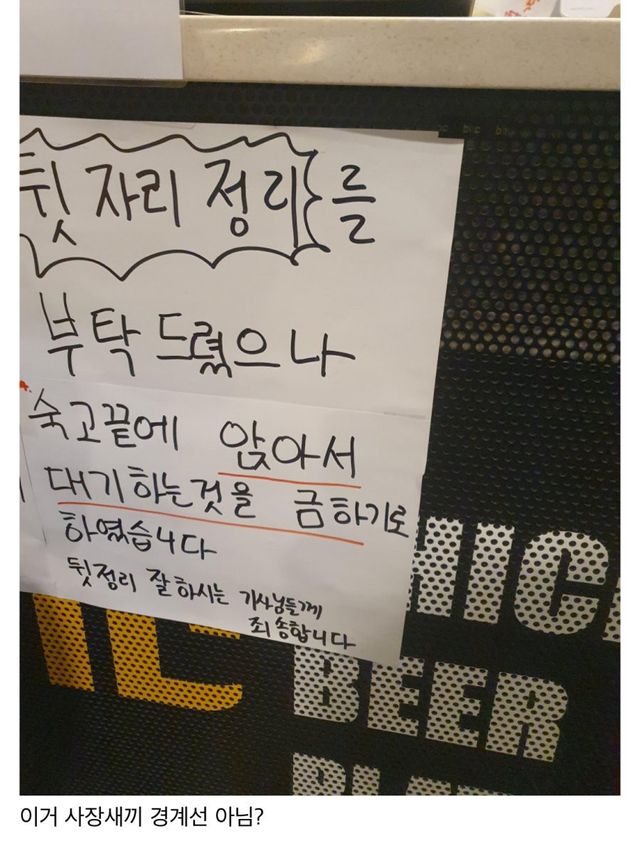 뒷자리 정리를
부탁드렸으나
숙고끝에 앉아서
대기하는것을 금하기로
하였습니다
뒷정리 잘하시는 기사님들께
죄송합니다
HIC
BEER
이거 사장새끼 경계선 아님?